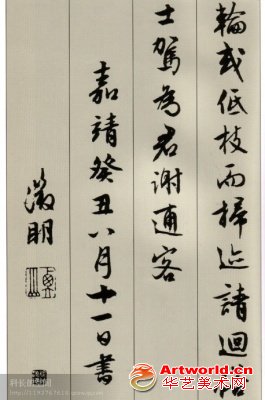 輪或低枝而掃迹請迴俗
士駕為君謝逋客
嘉靖癸丑八月十一日書
徵明
Artworld.cn
华艺美术网